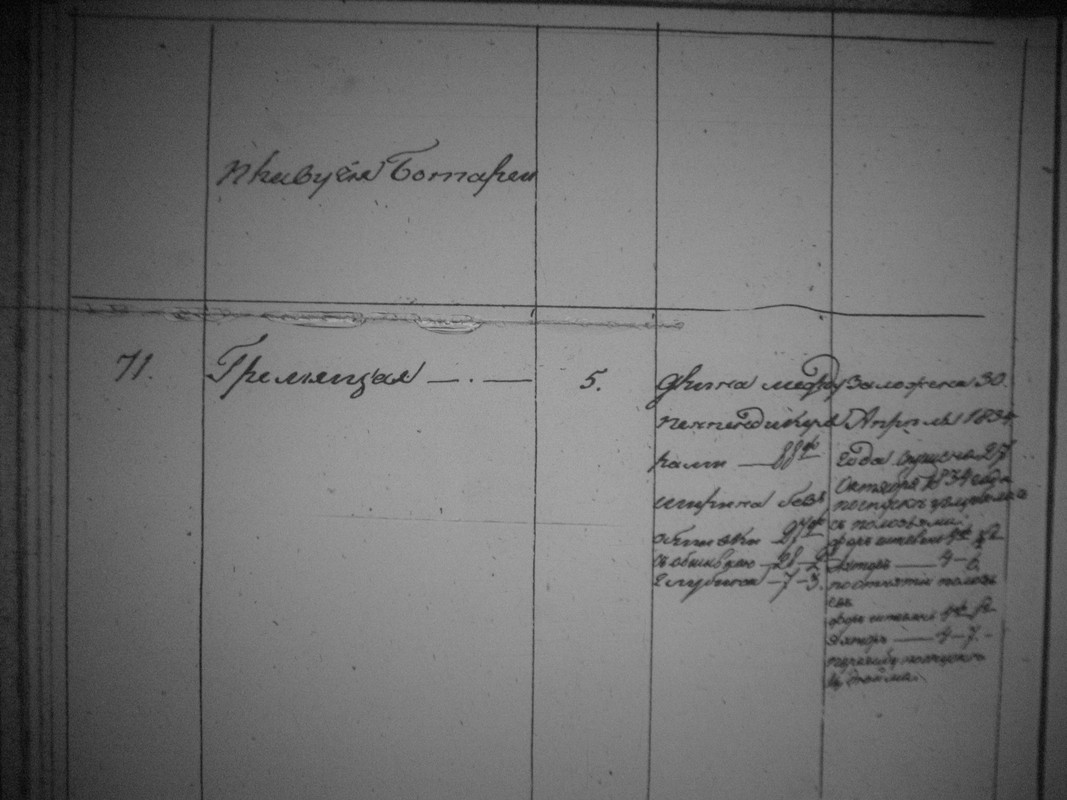 Пловучія Батареи
71. Гремящая —.— 5.
длина между
перпендикуля
рами — 88 фу
ширина безъ
обшивки 27 фу
съ обшивкою — 28 –
глубина — 7 – 3.
Заложена 30.
Апрѣля 1834
года спущена 27
Октября 1834 года
поспускѣ
съ полозьями.
форъ штевень
Ахтеръ — 4 – 6.
поотнятіи полозь
евъ
форъ штевень
Ахтеръ — 4 – 7. –
дюйма.